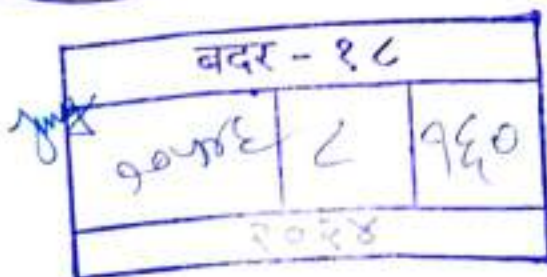 बदर - १८
१०५४६ ८ १६०
२०२४